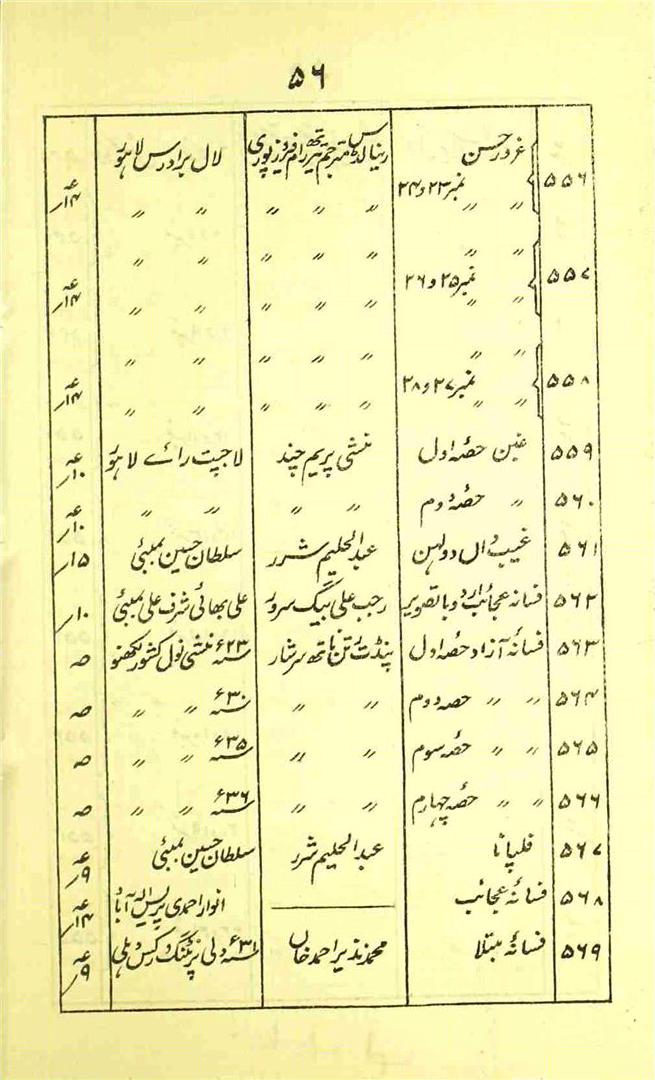 ۵۶
۵۵۶ غرور حسن رینالڈس مترجم تیرتھ رام فیروزپوری لال برادرس لاہور
نمبر ۲۳ و ۲۴
〃 〃 〃 〃 〃 〃 〃 ۱۴؍
〃 〃 〃 〃 〃 〃 〃
۵۵۷ نمبر ۲۵ و ۲۶
〃 〃 〃 〃 〃 〃 〃 ۱۴؍
〃 〃 〃 〃 〃 〃 〃
۵۵۸ نمبر ۲۷ و ۲۸
〃 〃 〃 〃 〃 〃 〃 ۱۴؍
۵۵۹ غبن حصہ اول منشی پریم چند لاجپت رائے لاہور ۱۰؍
۵۶۰ 〃 حصہ دوم 〃 〃 〃 〃 ۱۰؍
۵۶۱ غیب داں دولہن عبدالحلیم شرر سلطان حسین بمبئی ۱۵؍
۵۶۲ فسانہ عجائب اردو باتصویر رجب علی بیگ سرور علی بھائی شرف علی بمبئی ۱۰؍
۵۶۳ فسانۂ آزاد حصہ اول پنڈت رتن ناتھ سرشار ۶۲۳ منشی نول کشور لکھنو
۵۶۴ 〃 〃 حصہ دوم 〃 〃 ۶۳۰ 〃 〃
۵۶۵ 〃 〃 حصہ سوم 〃 〃 ۶۳۵ 〃 〃
۵۶۶ 〃 〃 حصہ چہارم 〃 〃 ۶۳۶ 〃 〃
۵۶۷ فلپانا عبدالحلیم شرر سلطان حسین بمبئی ۹؍
۵۶۸ فسانۂ عجائب انوار احمدی پریس الہ آباد ۱۴؍
۵۶۹ فسانۂ مبتلا محمد نذیر احمد خاں ۶۳۱ دلی پرنٹنگ ورکس دہلی ۹؍